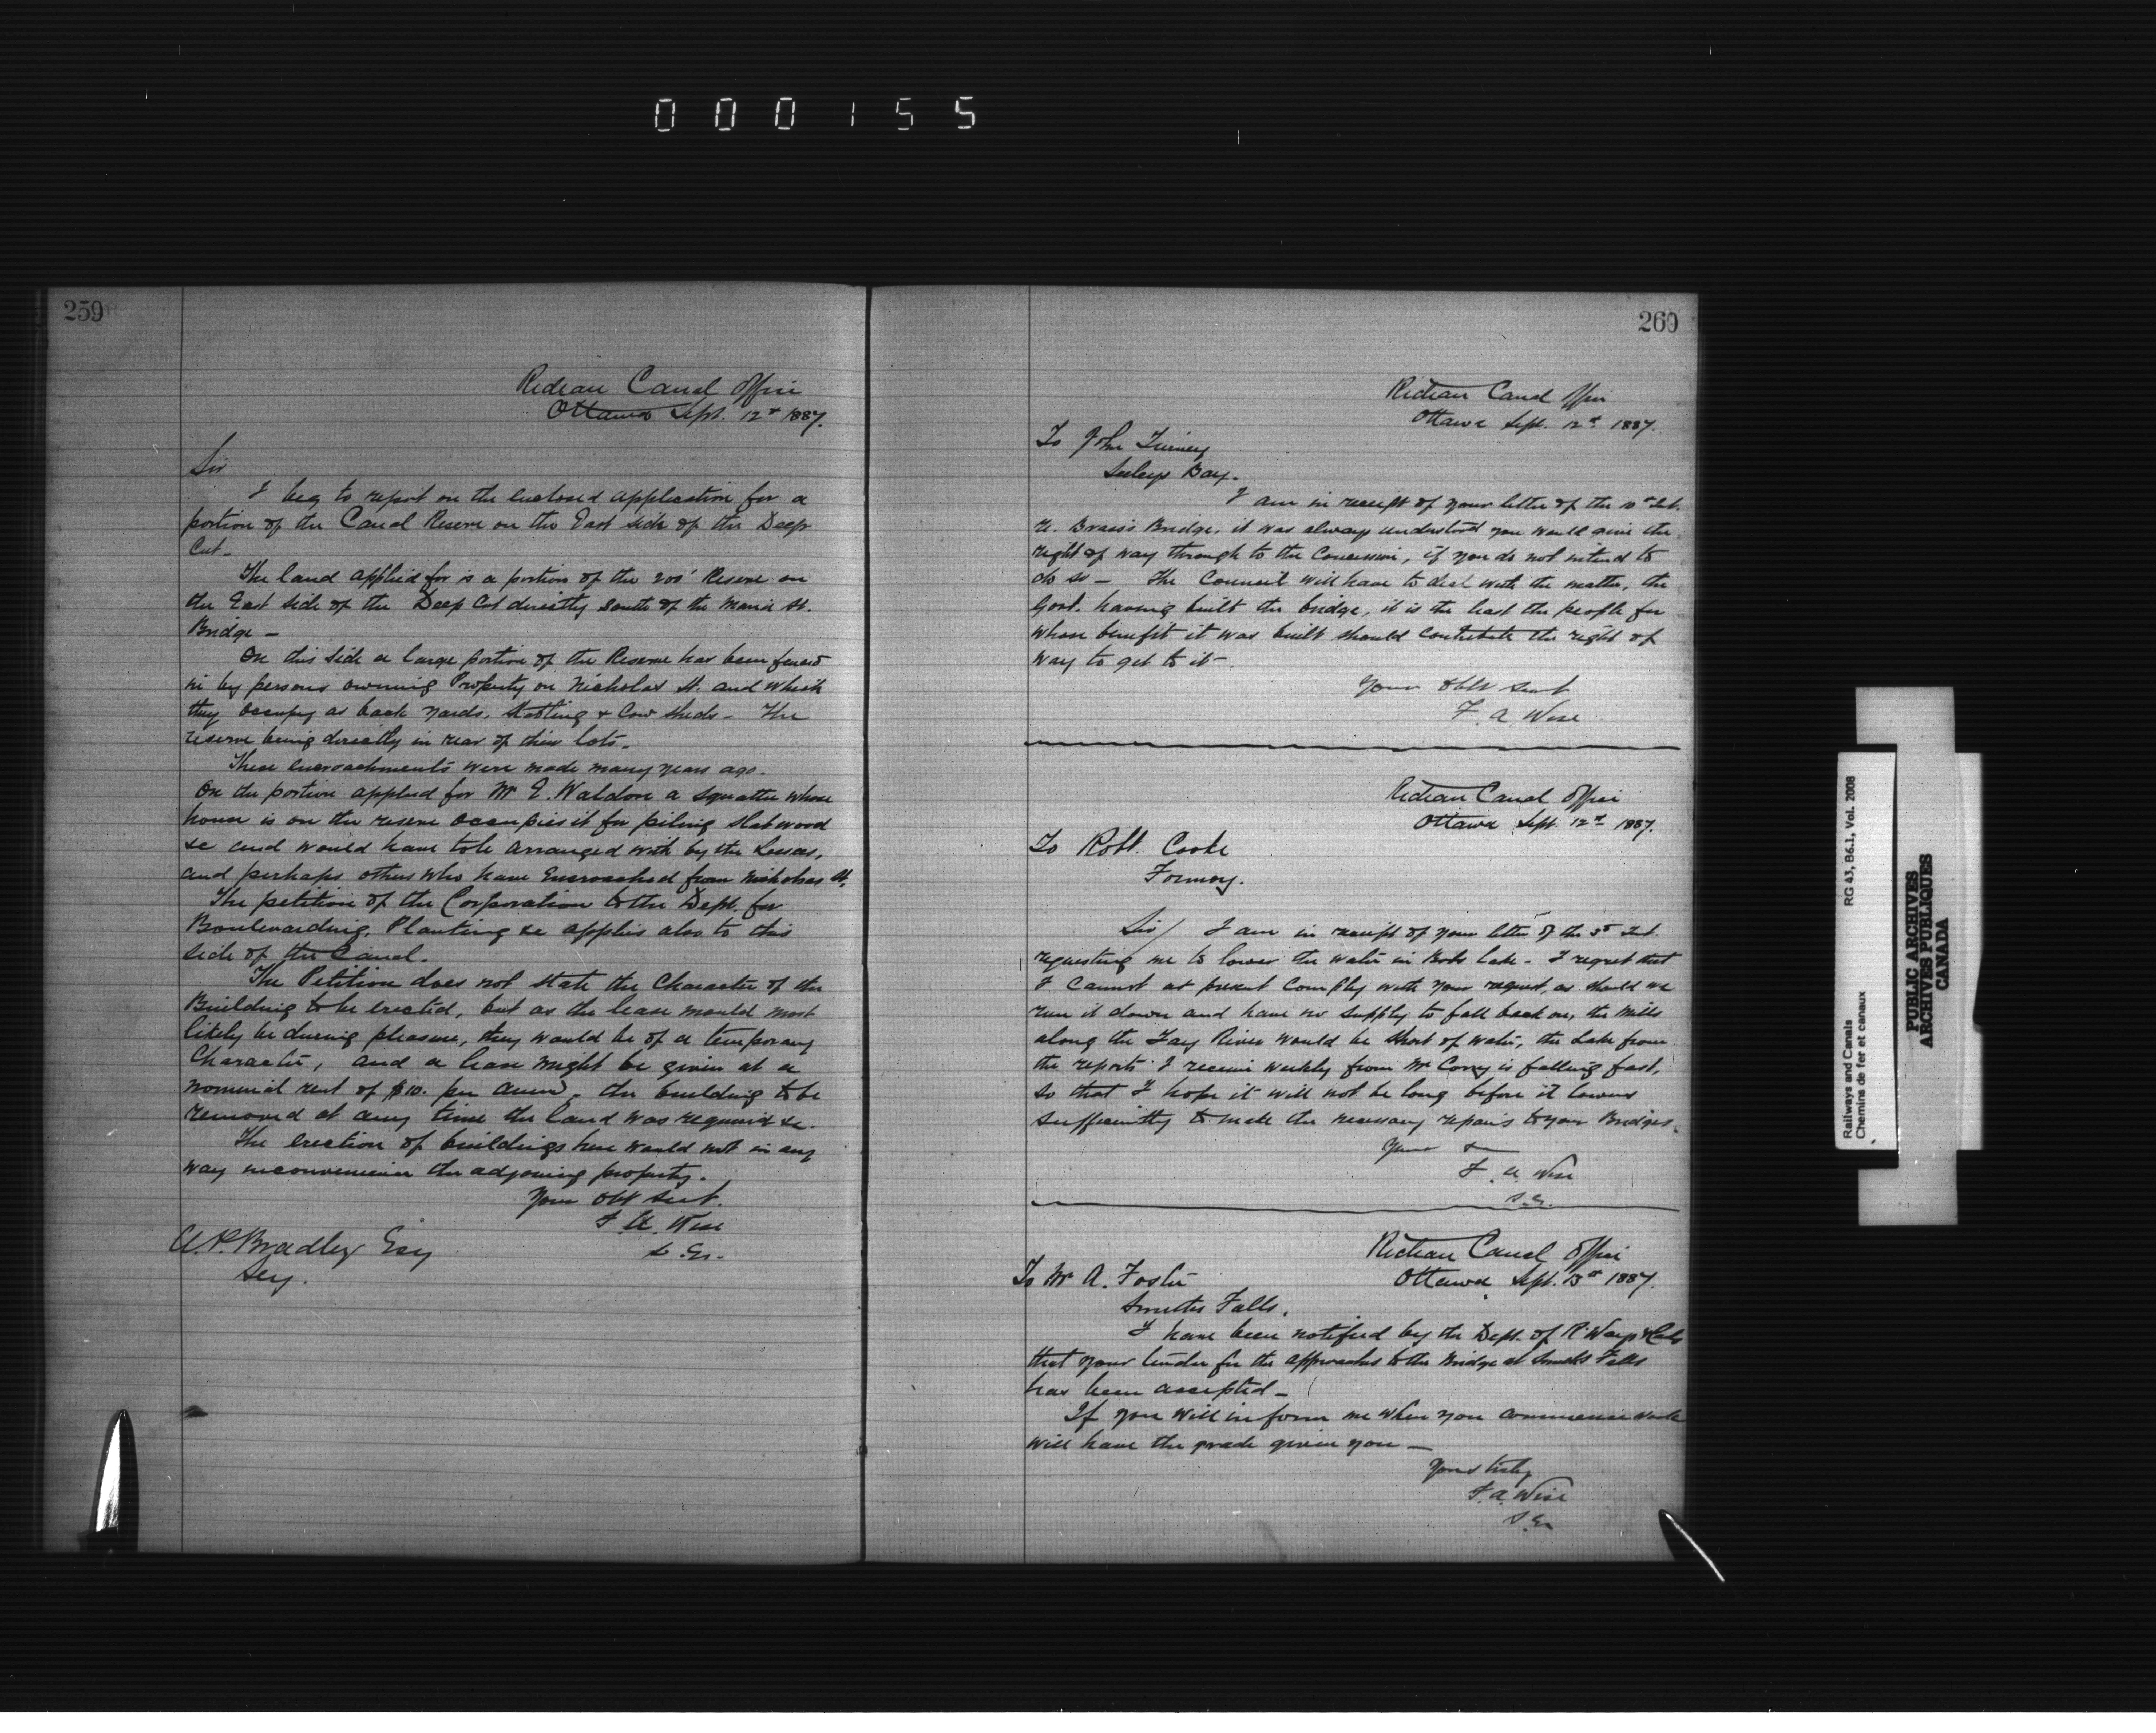 000155
259
Rideau Canal Office
Ottawa Sept. 12th 1887.
Sir
I beg to report on the enclosed application for a
portion of the Canal Reserve on the East side of the Deep
Cut_
The land applied for is a portion of the 200' Reserve on
the East side of the Deep Cut directly south of the Maria St.
Bridge_
On this side a large portion of the Reserve has been fenced
in by persons owning Property on Nicholas St. and which
they occupy as back yards, stabling & Cow sheds_ The
reserve being directly in rear of their lots_
These encroachments were made many years ago_
On the portion applied for Mr E. Waldon a squatter whose
house is on the reserve occupies it for piling slabwood
&c and would have to be arranged with by the Lessees,
and perhaps others who have Encroached from Nicholas St.
The petition of the Corporation to the Dept. for
Boulevarding, Planting &c applies also to this
side of the Canal.
The Petition does not state the Character of the
Building to be erected, but as the lease would most
likely be during pleasure, they would be of a temporary
Character, and a lease might be given at a
nominal rent of $10. per annm. the building to be
removed at any time the land was required &c.
The erection of buildings here would not in any
way inconvenience the adjoining property.
Your obt Servt.
F. A. Wise
S. E.
A. P. Bradley Esq
Secy.
260
Rideau Canal Office
Ottawa Sept. 12th 1887.
To John Tierney
Seeleys Bay.
I am in receipt of your letter of the 10th Inst.
re. Brass's Bridge, it was always understood you would give the
right of way through to the Concession, if you do not intend to
do so_ The Council will have to deal with the matter, the
Govt. having built the bridge, it is the least the people for
whose benefit it was built should contribute the right of
way to get to it_
Your obt servt
F. A. Wise
Rideau Canal Office
Ottawa Sept. 12th 1887.
To Robt. Cooke
Fermoy.
Sir/ I am in receipt of your letter of the 5th Inst.
requesting me to lower the water in Bobs Lake_ I regret that
I cannot at present comply with your request, as should we
run it down and have no supply to fall back on, the Mills
along the Tay River would be short of water, the Lake from
the reports I receive weekly from Mr Corry is falling fast,
so that I hope it will not be long before it lowers
sufficiently to make the necessary repairs to your Bridges.
Yours &
F. A. Wise
S.E.
Rideau Canal Office
Ottawa Sept. 13th 1887.
To Mr A. Foster
Smiths Falls.
I have been notified by the Dept. of R'Ways & Cals
that your tender for the approaches to the Bridge at Smiths Falls
has been accepted_
If you will inform me when you commence work
will have the grade given you_
Yours truly
F. A. Wise
S. E.
Railways and Canals
Chemins de fer et canaux
RG 43, B6.1, Vol. 2008
PUBLIC ARCHIVES
ARCHIVES PUBLIQUES
CANADA